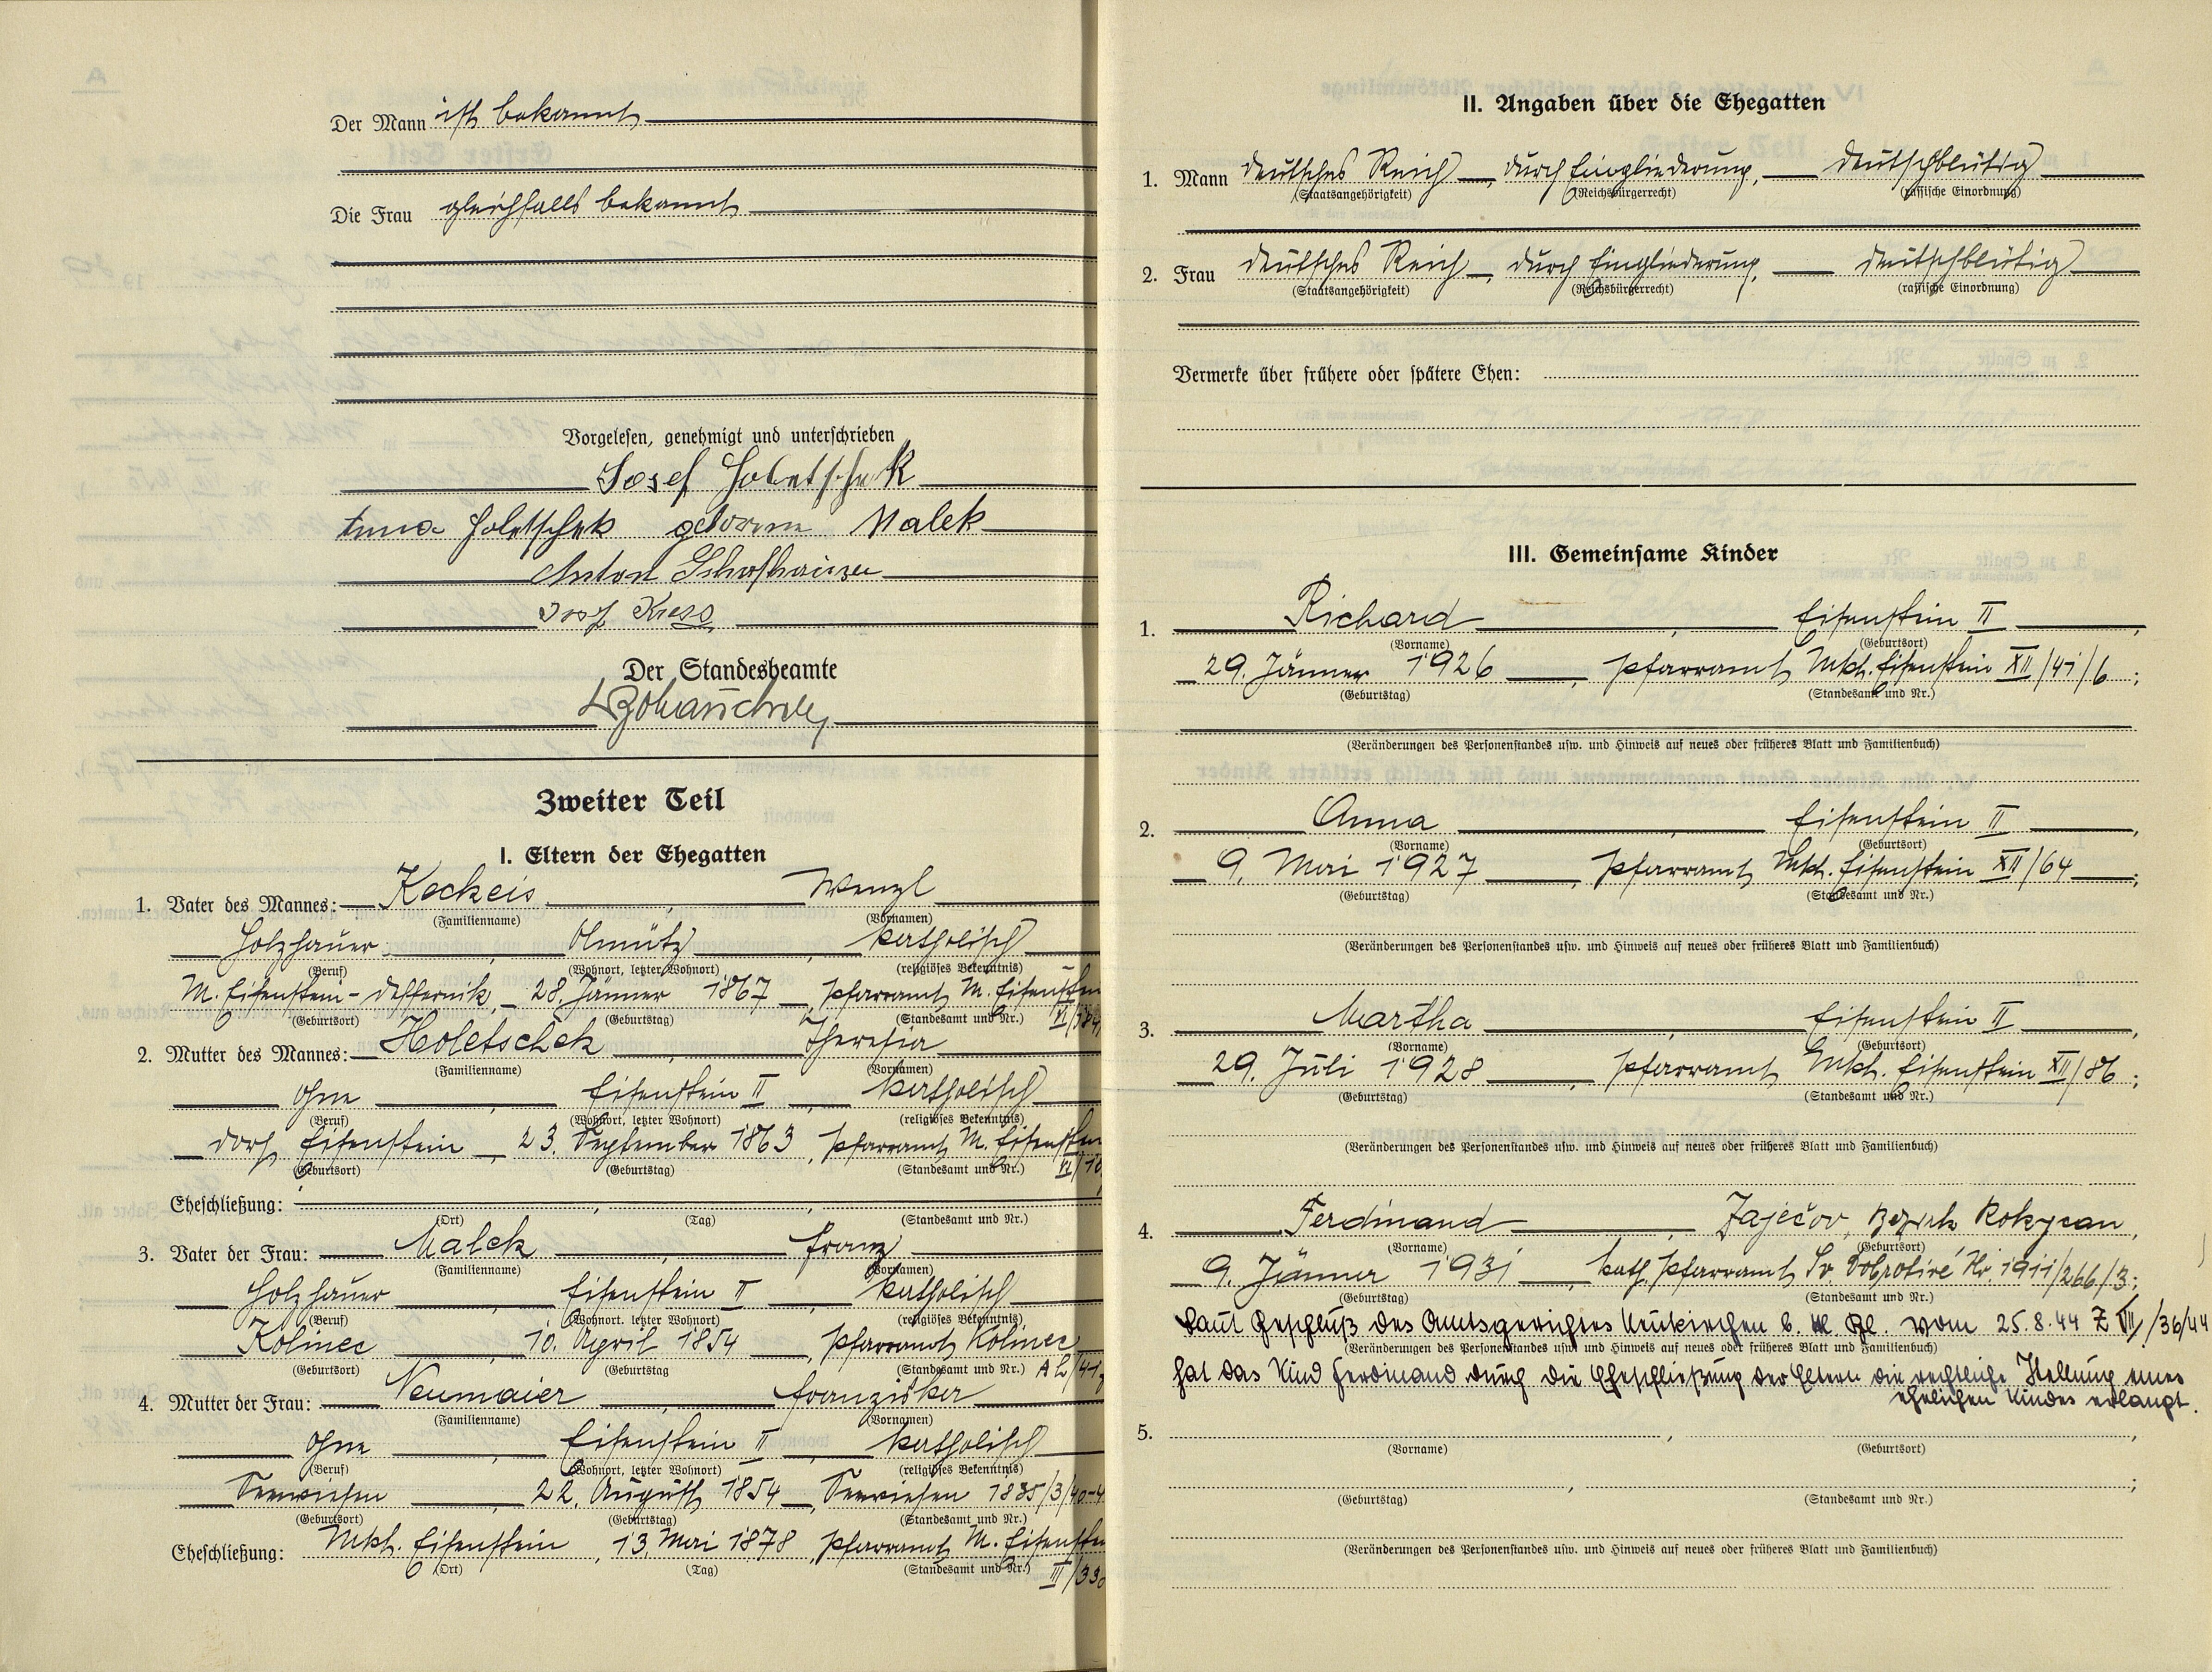 Der Mann ist bekannt
Die Frau gleichfalls bekannt
Vorgelesen, genehmigt und unterschrieben
Josef Holetschek
Anna Holetschek geborene Malek
Anton
Josef Kress
Der Standesbeamte
Zweiter Teil
I. Eltern der Ehegatten
1. Vater des Mannes: Keckeis, Wenzl
(Familienname) (Vornamen)
Holzhauer, Olmütz, katholisch
(Beruf) (Wohnort, letzter Wohnort) (religiöses Bekenntnis)
M. Eisenstein - Deffernik, 28. Jänner 1867, Pfarramt M. Eisenstein
(Geburtsort) (Geburtstag) (Standesamt und Nr.)
2. Mutter des Mannes: Holetschek, Theresia
(Familienname) (Vornamen)
ohne, Eisenstein II, katholisch
(Beruf) (Wohnort, letzter Wohnort) (religiöses Bekenntnis)
Dorf Eisenstein, 23. September 1863, Pfarramt M. Eisenstein
(Geburtsort) (Geburtstag) (Standesamt und Nr.) VI/10
Eheschließung:
(Ort) (Tag) (Standesamt und Nr.)
3. Vater der Frau: Malek, Franz
(Familienname) (Vornamen)
Holzhauer, Eisenstein II, katholisch
(Beruf) (Wohnort, letzter Wohnort) (religiöses Bekenntnis)
Kolinec, 10. April 1854, Pfarramt Kolinec
(Geburtsort) (Geburtstag (Standesamt und Nr.)
4. Mutter der Frau: Neumaier, Franziska
(Familienname) (Vornamen)
ohne, Eisenstein II, katholisch
(Beruf) (Wohnort, letzter Wohnort) (religiöses Bekenntnis)
Seewiesen, 22. August 1854, Seewiesen 1835/3/40-4
(Geburtsort) (Geburtstag) (Standesamt und Nr.)
Eheschließung: Mkt. Eisenstein, 13. Mai 1878, Pfarramt M. Eisenstein
(Ort) (Tag) (Standesamt und Nr.) III/330
II. Angaben über die Ehegatten
1. Mann Deutsches Reich, durch Eingliederung, deutschblütig
(Staatsangehörigkeit) (Reichsbürgerrecht) (rassische Einordnung)
2. Frau Deutsches Reich, durch Eingliederung, deutschblütig
(Staatsangehörigkeit) (Reichsbürgerrecht) (rassische Einordnung)
Vermerke über frühere oder spätere Ehen:
III. Gemeinsame Kinder
1. Richard, Eisenstein II,
(Vorname) (Geburtsort)
29. Jänner 1926, Pfarramt Mkt. Eisenstein XII/41/6;
(Geburtstag) (Standesamt und Nr.)
(Veränderungen des Personenstandes usw. und Hinweis auf neues oder früheres Blatt und Familienbuch)
2. Anna, Eisenstein II,
(Vorname) (Geburtsort)
9. Mai 1927, Pfarramt Mkt. Eisenstein XII/64;
(Geburtstag) (Standesamt und Nr.)
(Veränderungen des Personenstandes usw. und Hinweis auf neues oder früheres Blatt und Familienbuch)
3. Martha, Eisenstein II,
(Vorname) (Geburtsort)
29. Juli 1928, Pfarramt Mkt. Eisenstein XII/86;
(Geburtstag) (Standesamt und Nr.)
(Veränderungen des Personenstandes usw. und Hinweis auf neues oder früheres Blatt und Familienbuch)
4. Ferdinand, Zaječov, Bezirk Rokycan,
(Vorname) (Geburtsort)
9. Jänner 1931, kath. Pfarramt Sv. Dobrotivé Nr. 1911/266/3;
(Geburtstag) (Standesamt und Nr.)
Laut Beschluß des Amtsgerichtes Neukirchen b. hl. Bl. vom 25.8.44 Z VII/36/44
(Veränderungen des Personenstandes usw. und Hinweis auf neues oder früheres Blatt und Familienbuch)
hat das Kind Ferdinand durch die Eheschließung der Eltern die rechtliche Stellung eines
ehelichen Kindes erlangt.
5.
(Vorname) (Geburtsort)
(Geburtstag) (Standesamt und Nr.)
(Veränderungen des Personenstandes usw. und Hinweis auf neues oder früheres Blatt und Familienbuch)